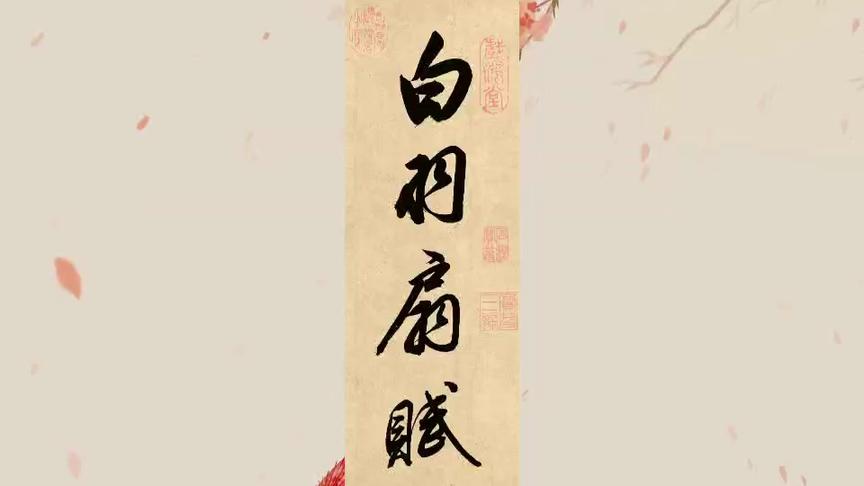 白羽扇賦